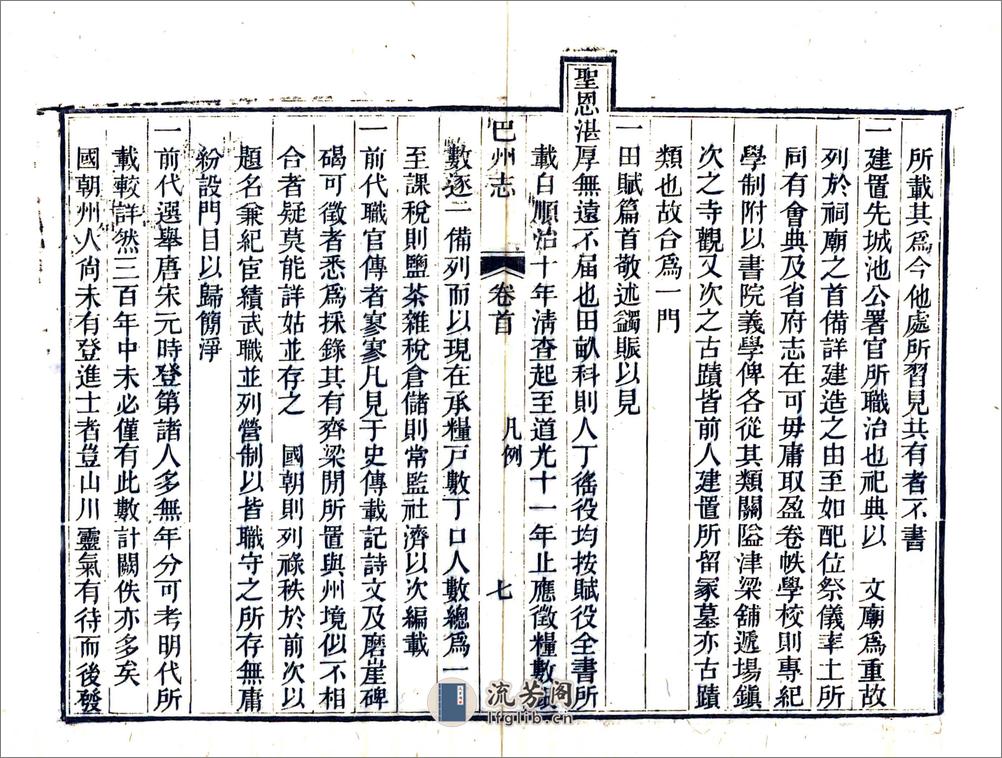 所載其爲今他處所習見共有者不書
一建置先城池公署官所職治也祀典以　文廟爲重故
列於祠廟之首備詳建造之由至如配位祭儀率土所
同有會典及省府志在可毋庸取盈卷帙學校則專紀
學制附以書院義學俾各從其類關隘津梁舖遞場鎮
次之寺觀又次之古蹟皆前人建置所留冢墓亦古蹟
類也故合爲一門
一田賦篇首敬述蠲賑以見
聖恩湛厚無遠不届也田畝科則人丁徭役均按賦役全書所
載自順治十年淸查起至道光十一年止應徵糧數
巴州志
卷首
凡例
七
數逐一備列而以現在承糧戸數丁口人數總爲一
至課稅則鹽茶雜稅倉儲則常監社濟以次編載
一前代職官傳者寥寥凡見于史傳載記詩文及磨崖碑
碣可徵者悉爲採錄其有齊梁開所置與州境似不相
合者疑莫能詳姑並存之　國朝則列祿秩於前次以
題名兼紀宦績武職並列營制以皆職守之所存無庸
紛設門目以歸簡淨
一前代選舉唐宋元時登第諸人多無年分可考明代所
載較詳然三百年中未必僅有此數計闕佚亦多矣
國朝州人尚未有登進士者豈山川靈氣有待而後發
流芳阁
lfglib.cn